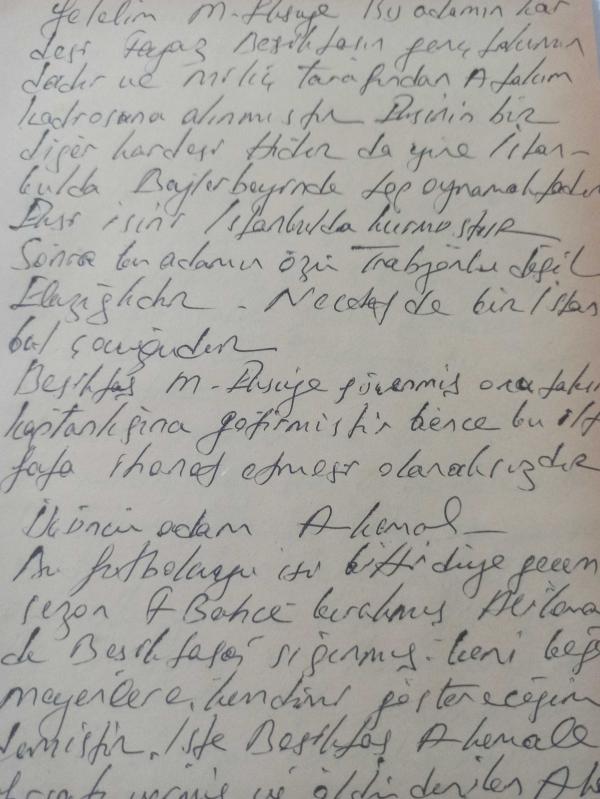 gelelim M. Ekşiye Bu adamın kar
deşi Fayaz Beşiktaşın genç takımın
dadır ve Miliç tarafından A takım
kadrosuna alınmıştır Ekşinin bir
diğer kardeşi Hıdır da yine İstan-
bulda Beylerbeyinde top oynamaktadır
Ekşi işini İstanbulda kurmuştur
Sonra bu adamın özü Trabzonlu değil
Elazığlıdır - Necdet de bir İstan
bul çocuğudur
Beşiktaş M-Ekşiye güvenmiş onu takım
kaptanlığına getirmiştir bence bu ilt
fata ihanet etmesi olanaksızdır
İkinci adam A kemal
Bu futbolcuyu işi bitti diye geçen
sezon F Bahçe bırakmış
de Beşiktaşa sığınmış. beni beğen
meyenlere, kendimi göstereceğim
demiştir. İşte Beşiktaş A kemale
fırsatı vermiş ve öldü denilen A ke